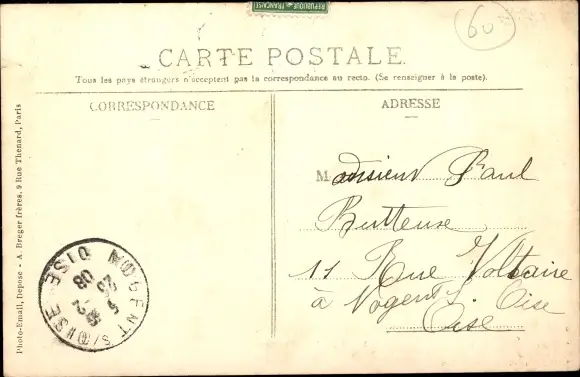 REPUBLIQUE FRANÇAISE
60
CARTE POSTALE
Tous les pays étrangers n'acceptent pas la correspondance au recto. (Se renseigner à la poste).
CORRESPONDANCE
ADRESSE
Monsieur Paul
Butteuse
11 Rue Voltaire
à Nogent s/ Oise
Oise
NOGENT S/OISE OISE
08
Photo-Email, Depose - A. Breger frères, 9 Rue Thenard, Paris